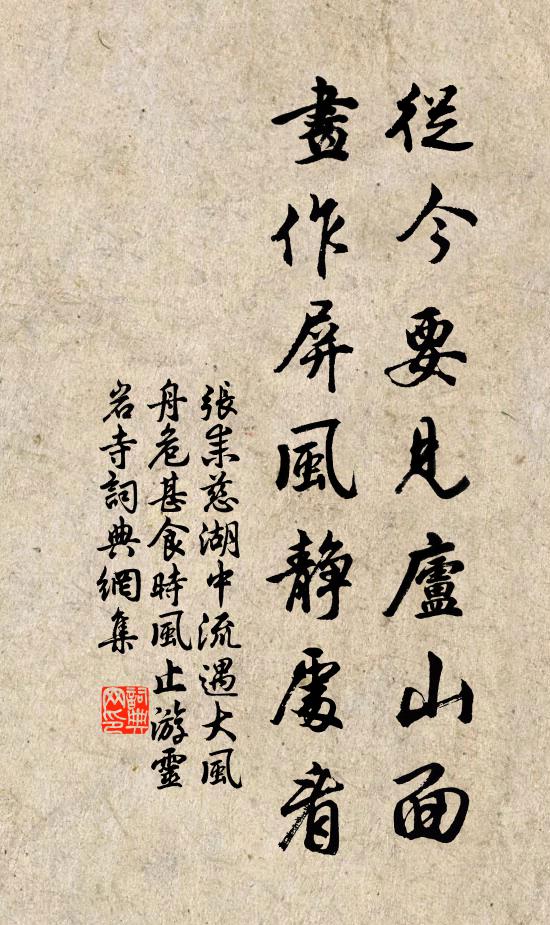 從今要見廬山面
畫作屏風靜處看
張耒慈湖中流遇大風
舟危甚食時風止游靈
岩寺詞典網集
詞典網印